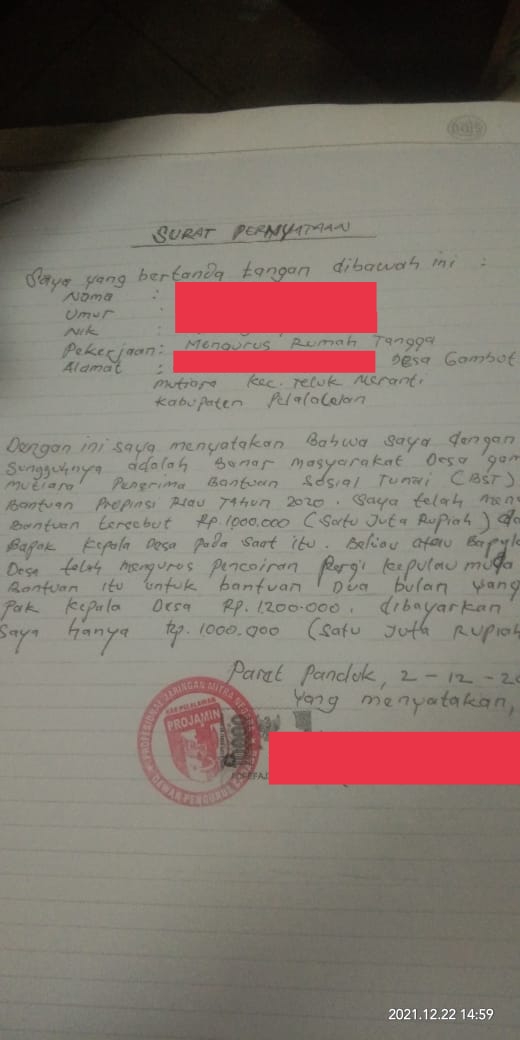 SURAT PERNYATAAN
Saya yang bertanda tangan dibawah ini :
Nama :
Umur :
Nik
Pekerjaan : Mengurus Rumah Tangga
Alamat : Desa Gambut
mutiara Kec. Teluk Meranti
Kabupaten Pelalawan
Dengan ini saya menyatakan Bahwa saya dengan
Sungguhnya adalah benar masyarakat Desa gam
mutiara Penerima Bantuan Sosial Tunai (BST)
Bantuan Propinsi Riau Tahun 2020. Saya telah men
Bantuan tersebut Rp. 1000.000 (Satu Juta Rupiah) da
Bapak Kepala Desa pada saat itu. Beliau atau Bapak
Desa telah mengurus Pencairan Pergi kepulau muda
Bantuan itu untuk bantuan Dua bulan yang
Pak Kepala Desa RP. 1.200.000, dibayarkan
Saya hanya Rp. 1000.000 (Satu Juta Rupiah
Parit Panduk, 2-12-20
Yang menyatakan,
PROFESIONAL JARINGAN MITRA NEGARA
KAB PELALAWAN
PROJAMIN
DEWAN PENGURUS
10000
2021.12.22 14:59